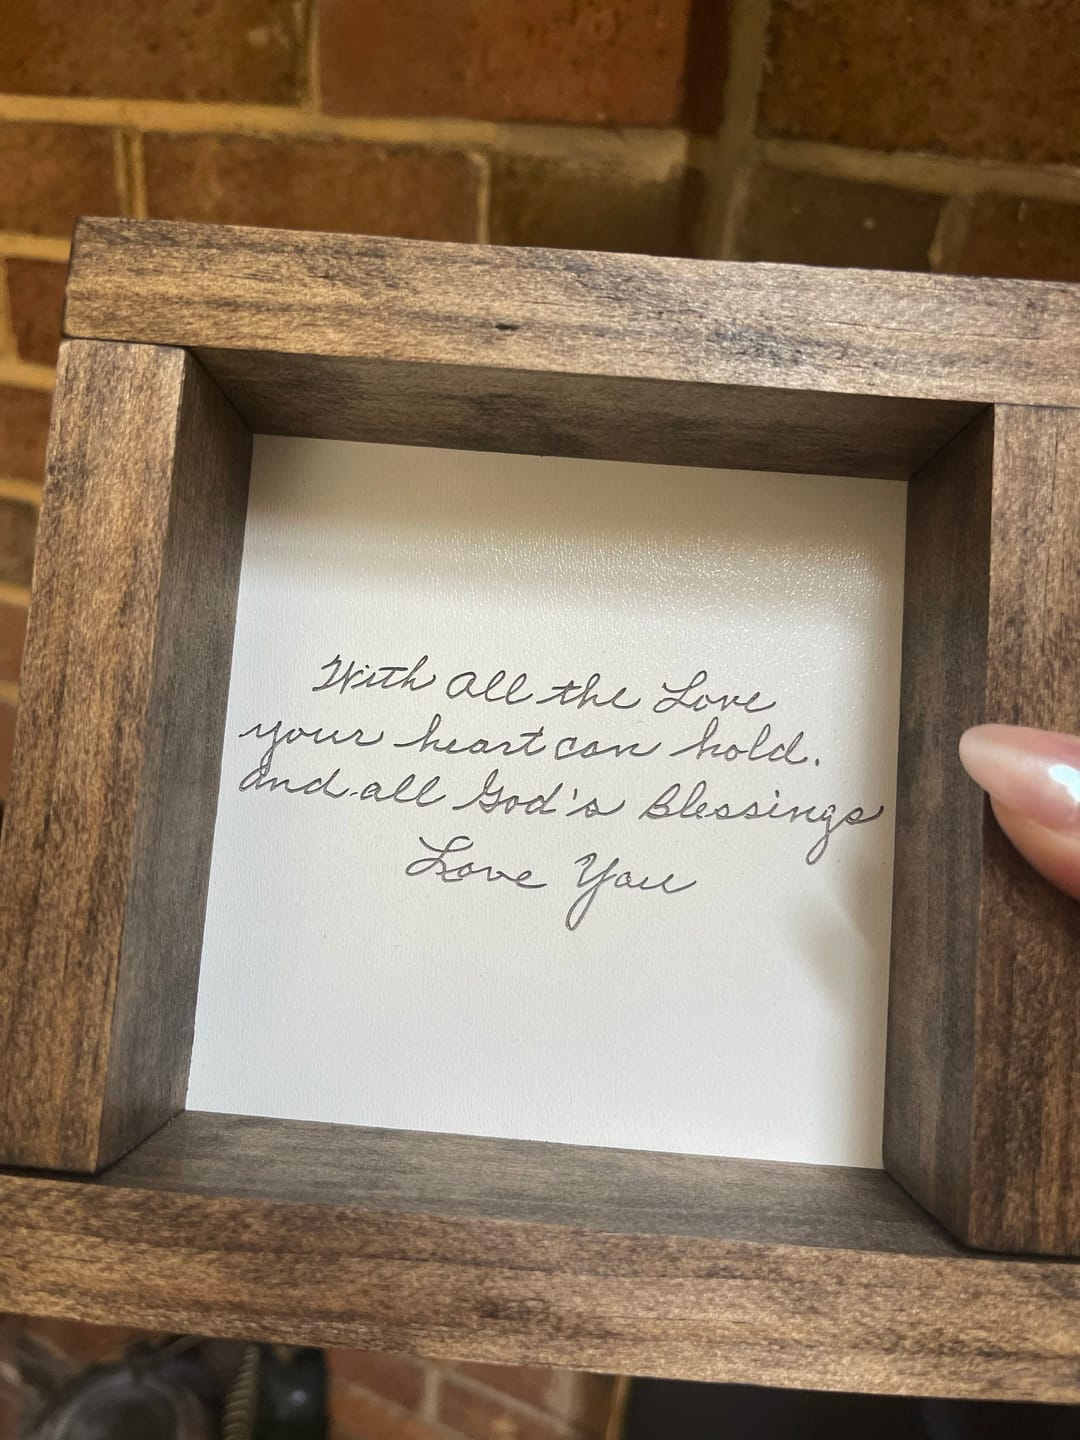 With all the Love
your heart can hold.
and all God's Blessings
Love You